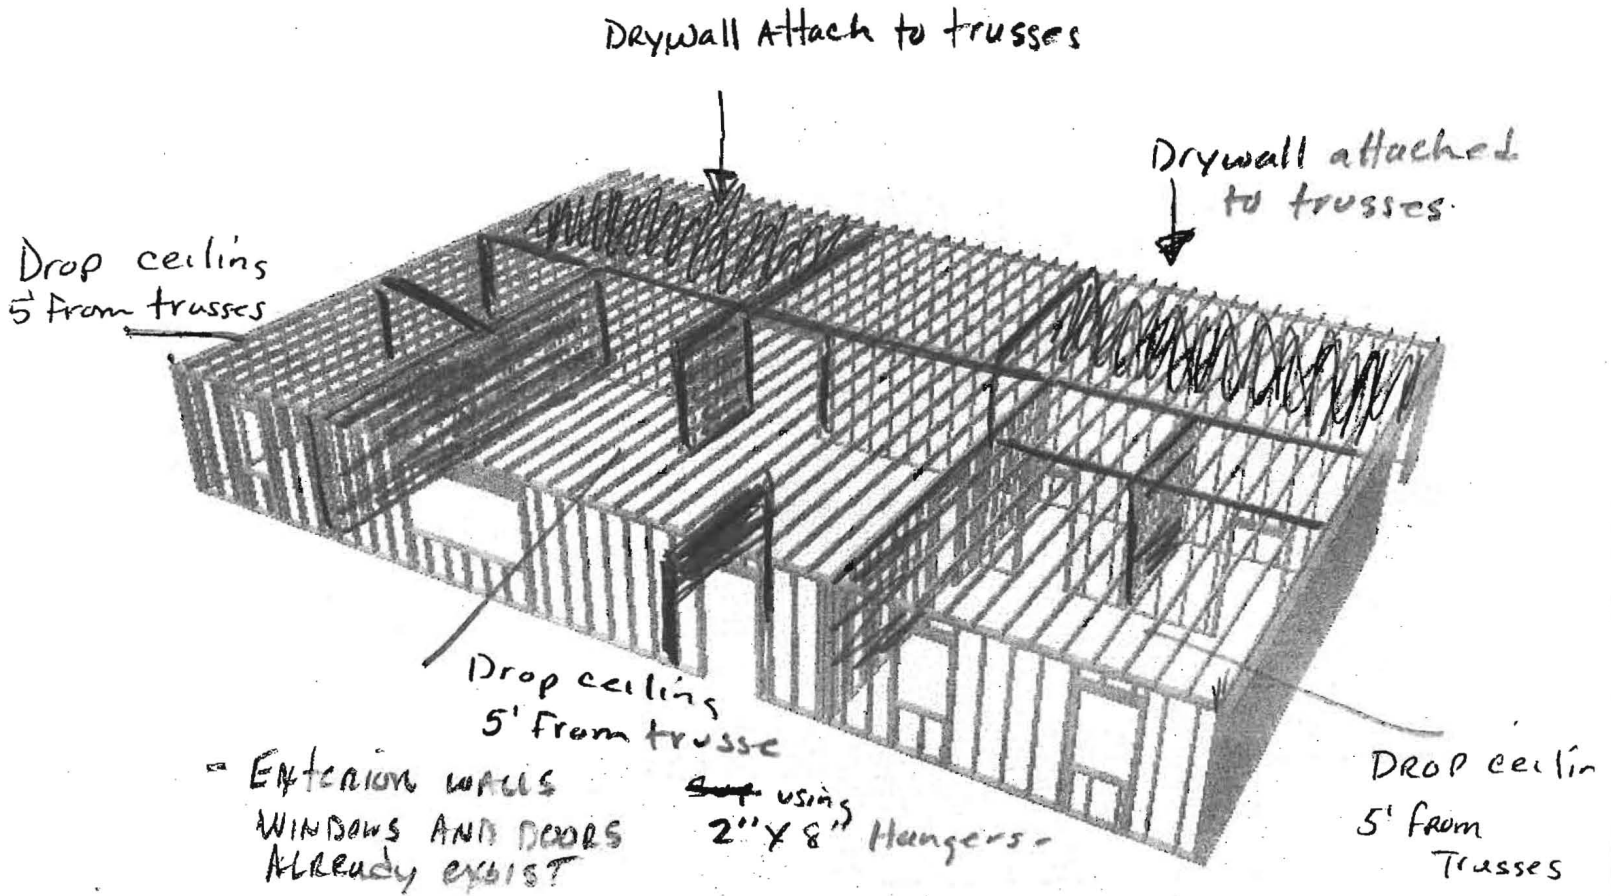 Drywall Attach to trusses
Drywall attached
to trusses.
Drop ceiling
5' From trusses
Drop ceiling
5' From trusse
using
2" X 8" Hangers-
- EXterior walls
WINDOWS AND DOORS
ALREADY exsist
DROP ceilin
5' from
Trusses